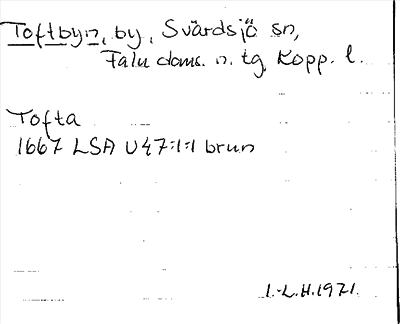 Toftbyn, by, Svärdsjö sn,
Falu doms. n. tg, Kopp. l.
Tofta
1667 LSA U47:1:1 brun
I.-L.H. 1971.